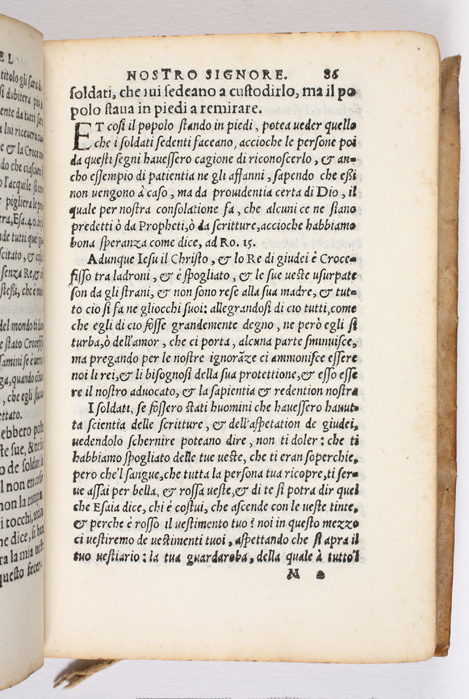 NOSTRO SIGNORE. 86
soldati, che iui sedeano a custodirlo, ma il po
polo staua in piedi a remirare.
ET cosi il popolo stando in piedi, potea ueder quello
che i soldati sedenti faceano, accioche le persone poi
da questi segni hauessero cagione di riconoscerlo, & an-
cho essempio di patientia ne gli affanni, sapendo che eßi
non uengono à caso, ma da prouidentia certa di Dio, il
quale per nostra consolatione fa, che alcuni ce ne siano
predetti ò da Propheti, ò da scritture, accioche habbiamo
bona speranza come dice, ad Ro. 15.
Adunque Iesu il Christo, & lo Re di giudei è Croce-
fisso tra ladroni, & è spogliato, & le sue ueste usurpate
son da gli strani, & non sono rese alla sua madre, & tut-
to cio si fa ne gliocchi suoi: allegrandosi di cio tutti, come
che egli di cio fosse grandemente degno, ne però egli si
turba, ò dell'amor, che ci porta, alcuna parte sminuisce,
ma pregando per le nostre ignorãze ci ammonisce essere
noi li rei, & li bisognosi della sua protettione, & esso esse
re il nostro aduocato, & la sapientia & redention nostra
I soldati, se fossero stati huomini che hauessero hauu-
ta scientia delle scritture, & dell'aspetation de giudei,
uedendolo schernire poteano dire, non ti doler: che ti
habbiamo spogliato delle tue ueste, che ti eran soperchie,
pero che'l sangue, che tutta la persona tua ricopre, ti ser-
ue assai per bella, & rossa ueste, & di te si potra dir quel
che Esaia dice, chi è costui, che ascende con le ueste tinte,
& perche è rosso il uestimento tuo? noi in questo mezzo
ci uestiremo de uestimenti tuoi, aspettando che si apra il
tuo uestiario: la tua guardaroba, della quale à tutto'l
M